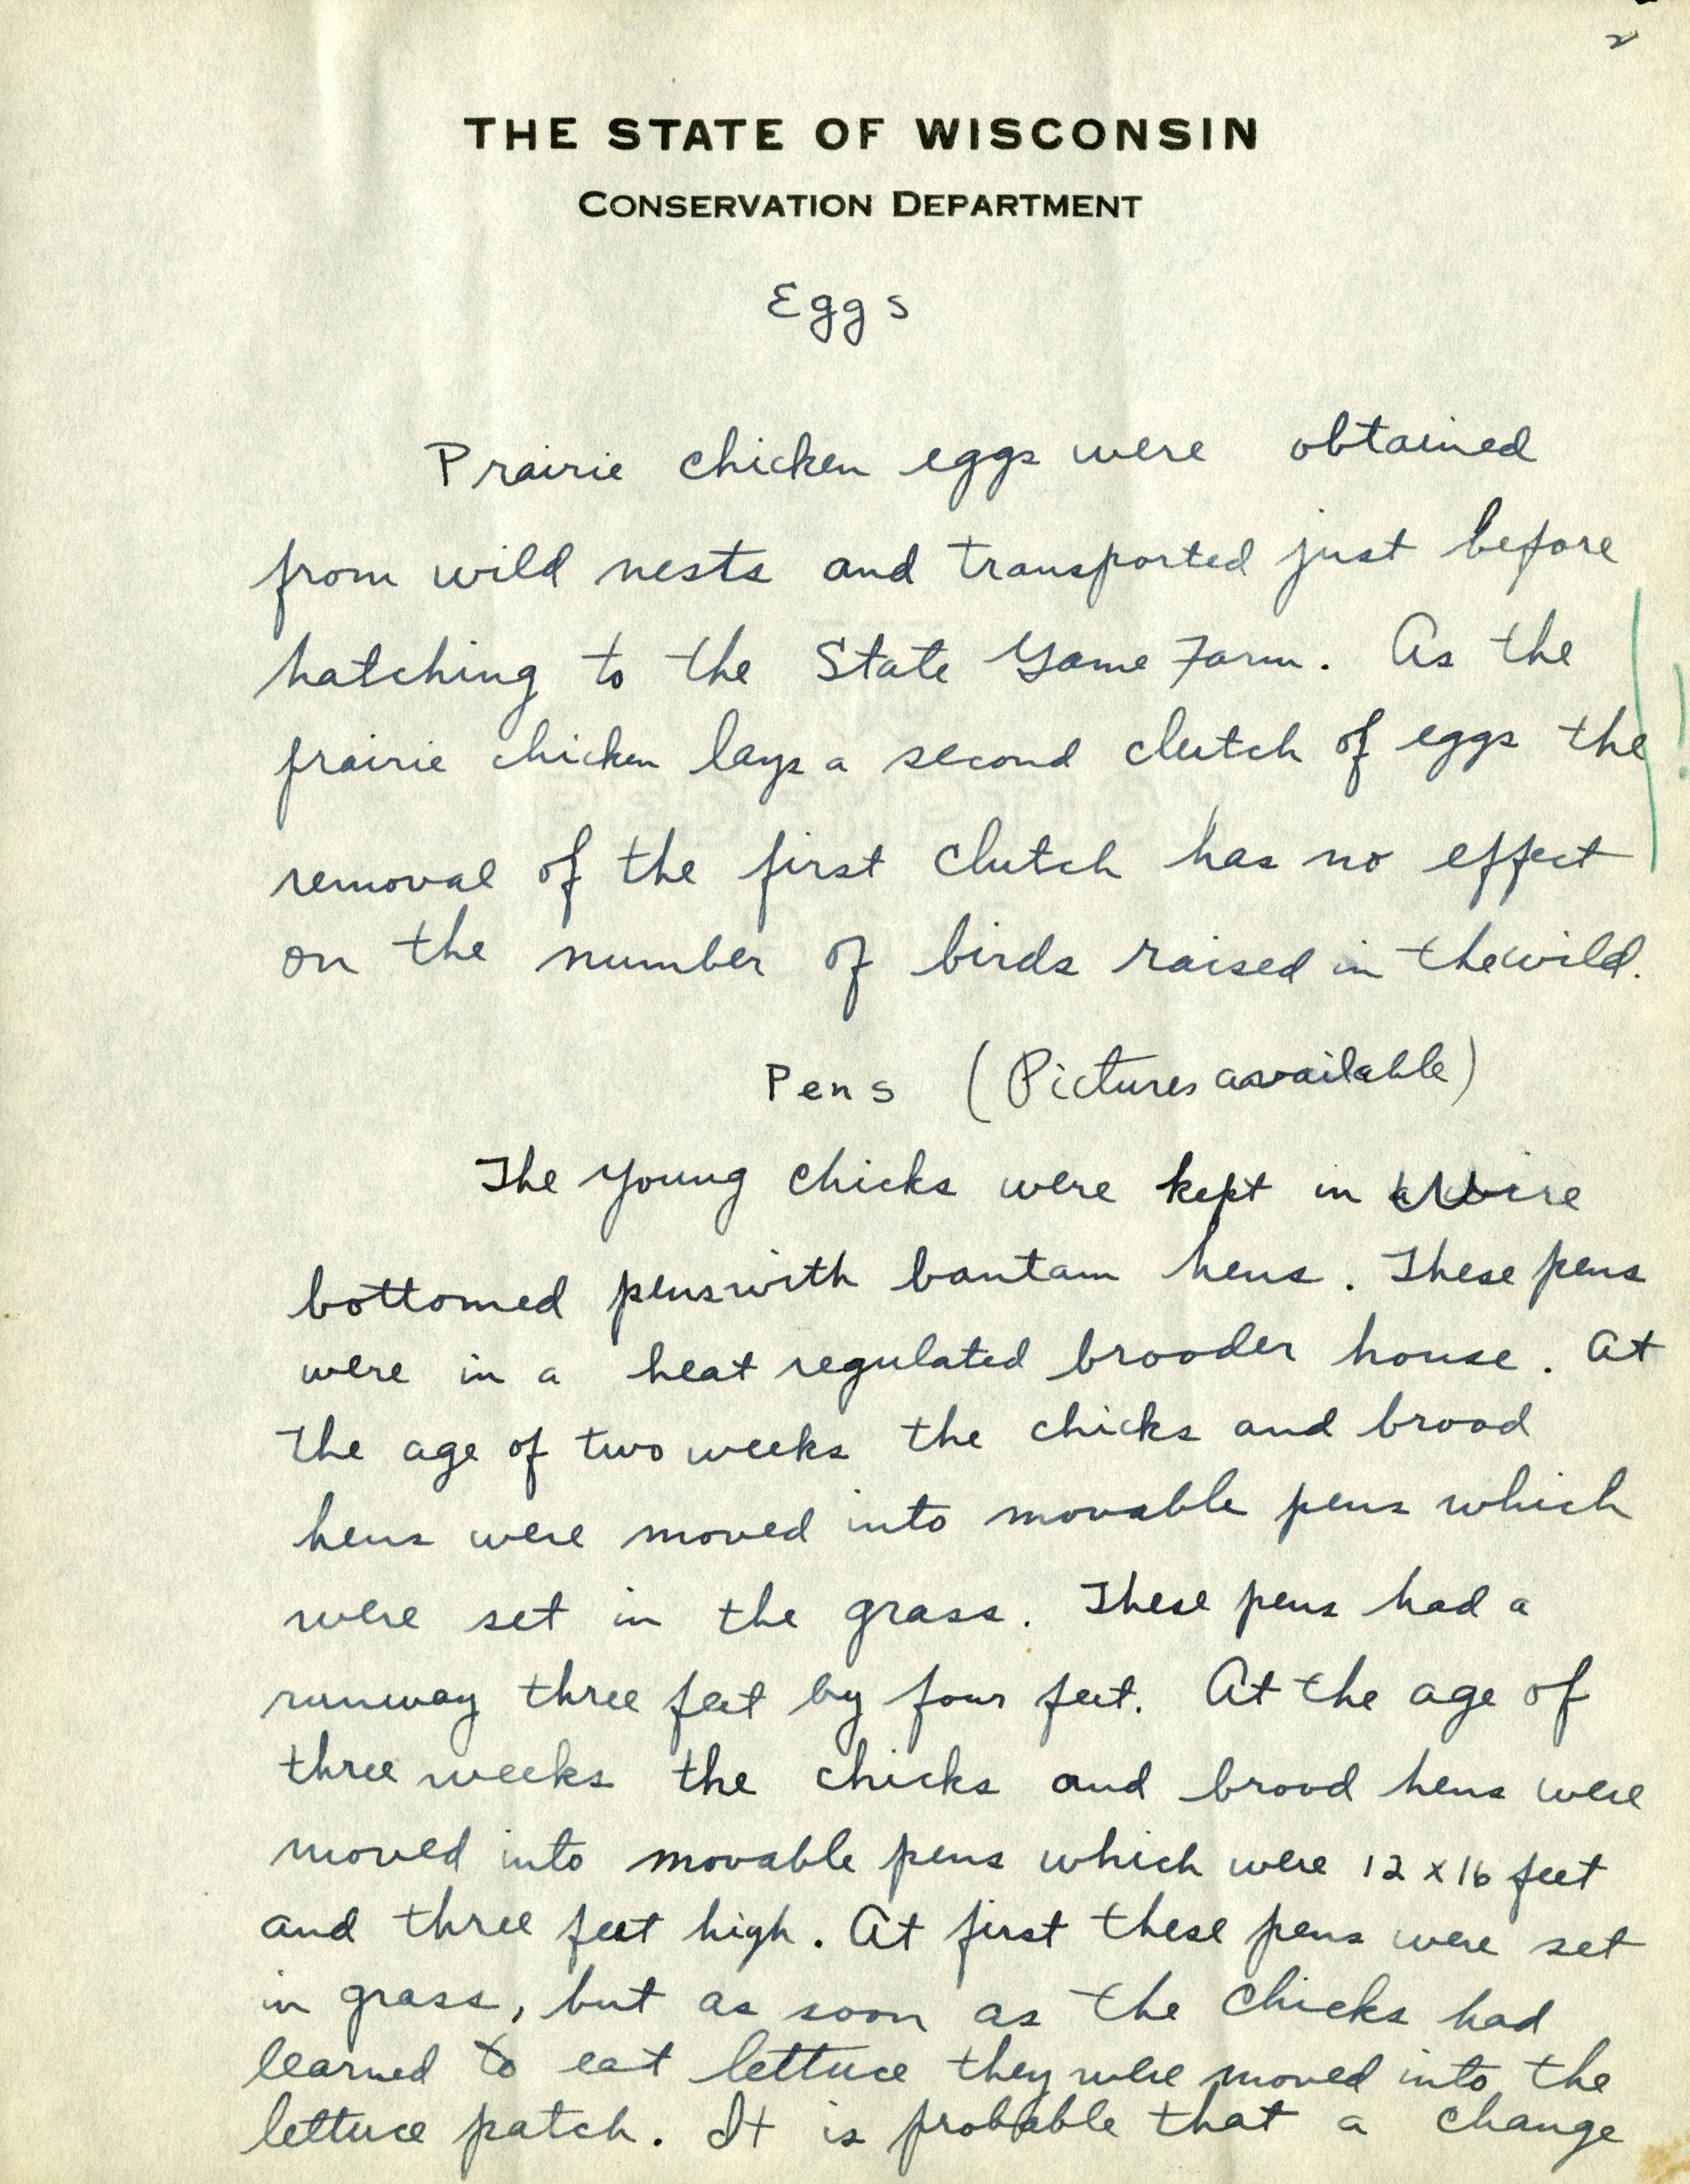 2
THE STATE OF WISCONSIN
CONSERVATION DEPARTMENT
Eggs
Prairie chicken eggs were obtained
from wild nests and transported just before
hatching to the State Game Farm. As the
prairie chicken lays a second clutch of eggs the
!
removal of the first clutch has no effect
on the number of birds raised in the wild.
Pens (Pictures available)
The young chicks were kept in wire
bottomed pens with bantam hens. These pens
were in a heat regulated brooder house. At
the age of two weeks the chicks and brood
hens were moved into movable pens which
were set in the grass. These pens had a
runway three feet by four feet. At the age of
three weeks the chicks and brood hens were
moved into movable pens which were 12 x 16 feet
and three feet high. At first these pens were set
in grass, but as soon as the chicks had
learned to eat lettuce they were moved into the
lettuce patch. It is probable that a change